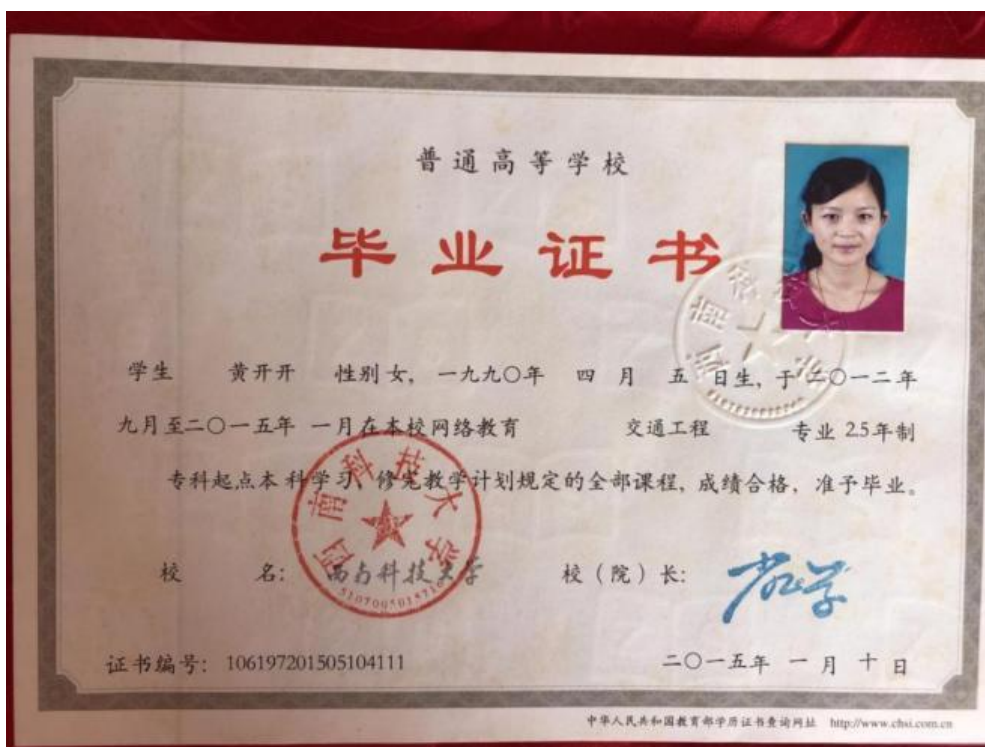 普通高等学校
毕业证书
学生 黄开开 性别 女, 一九九〇年 四 月 五 日生, 于 二〇一二年
九月至二〇一五年 一月在本校网络教育 交通工程 专业 2.5年制
专科起点本科学习, 修完教学计划规定的全部课程, 成绩合格, 准予毕业。
西南科技大学
5107005015710
校 名: 西南科技大学 校（院）长:
证书编号: 106197201505104111 二〇一五年 一 月 十 日
中华人民共和国教育部学历证书查询网址 http://www.chsi.com.cn